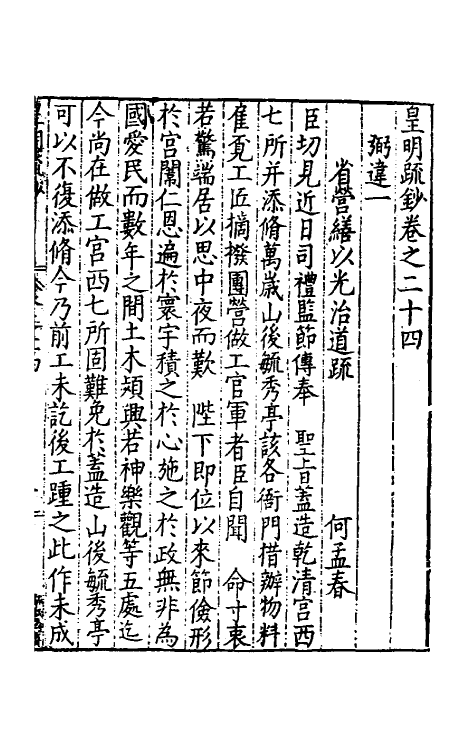 皇明疏鈔卷之二十四
弼違一
省營繕以光治道疏 何孟春
臣切見近日司禮監節傳奉 聖旨蓋造乾清宮西
七所并添脩萬歲山後毓秀亭該各衙門措辦物料
隹覔工匠摘撥團營做工官軍者臣自聞 命寸衷
若驚端居以思中夜而歎 陛下即位以來節儉形
於宮闈仁恩遍於寰宇積之於心施之於政無非為
國愛民而數年之間土木頻興若神樂觀等五處迄
今尚在做工宮西七所固難免於蓋造山後毓秀亭
可以不復添脩今乃前工未訖後工踵之此作未成